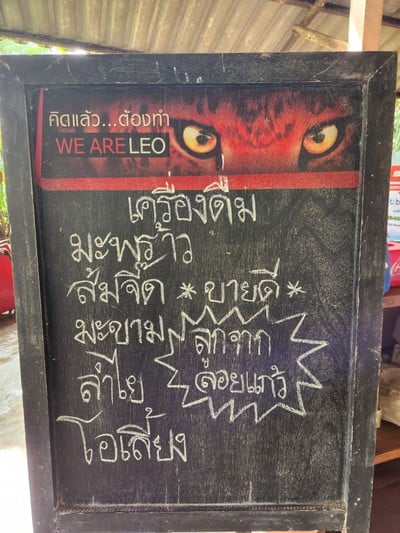 คิดแล้ว...ต้องทำ
WE ARE LEO
เครื่องดื่ม
มะพร้าว
ส้มจี๊ด *ขายดี*
มะขาม
ลูกจาก
ลอยแก้ว
ลำไย
โอเลี้ยง